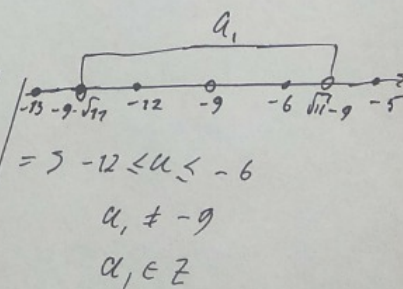 a₁
-13 -9-√11 -12 -9 -6 √11-9 -5
=> -12 ≤ a ≤ -6
a₁ ≠ -9
a₁ ∈ Z